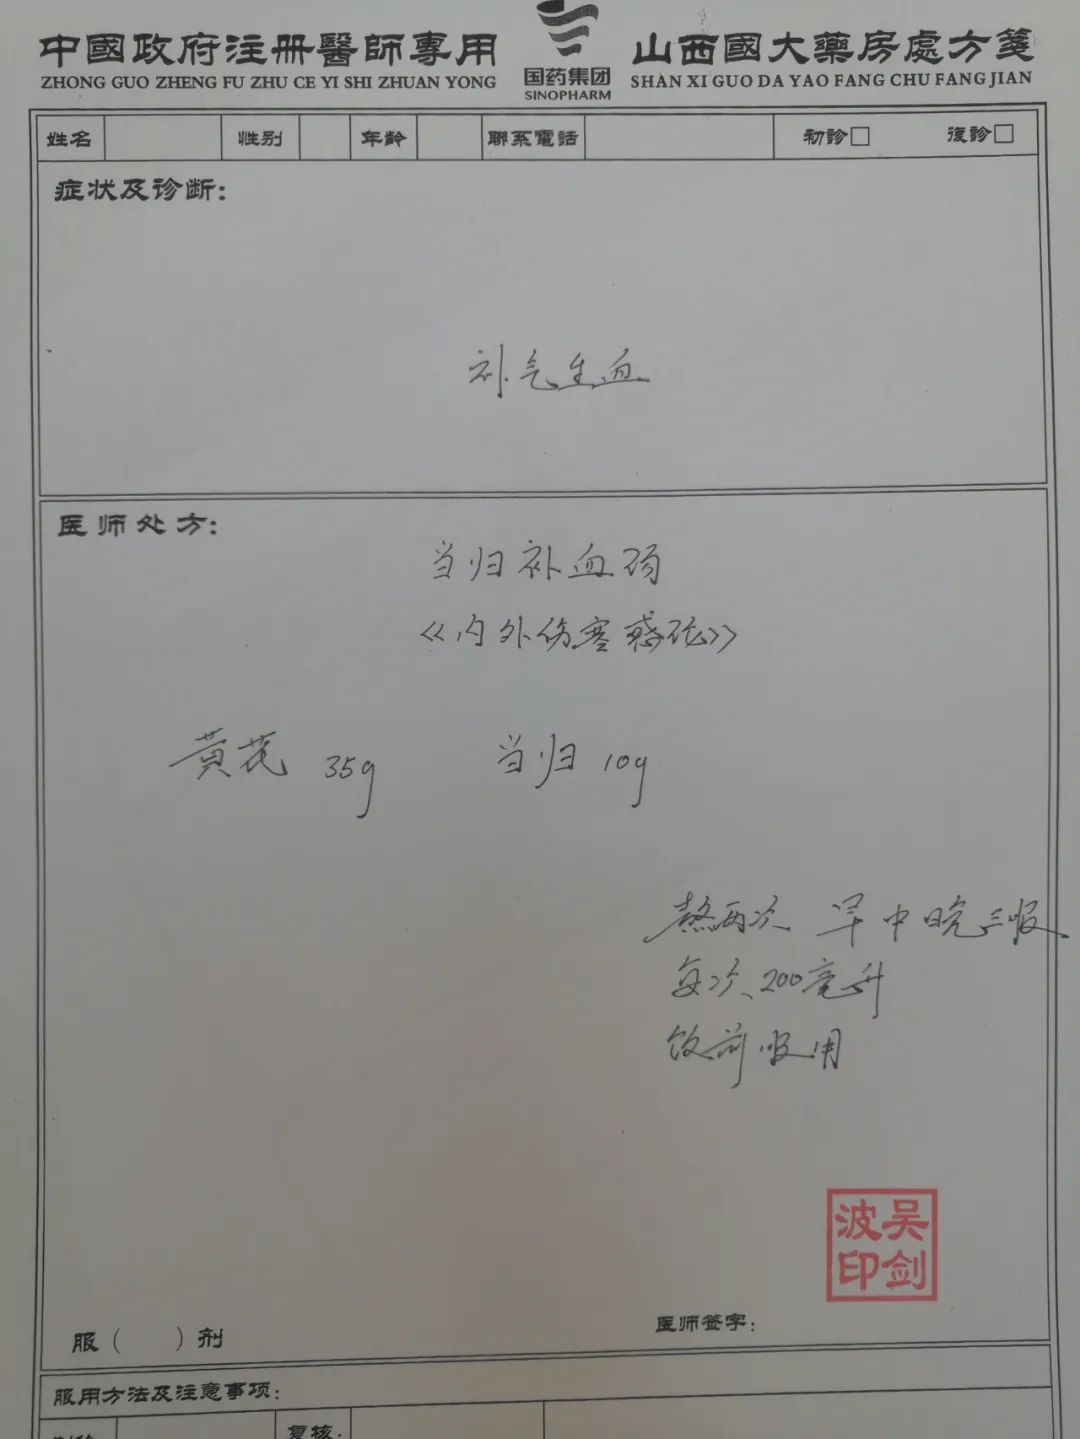 中國政府注册醫師專用
ZHONG GUO ZHENG FU ZHU CE YI SHI ZHUAN YONG
国药集团
SINOPHARM
山西國大藥房處方箋
SHAN XI GUO DA YAO FANG CHU FANG JIAN
姓名 性别 年龄 聯系電話 初診□ 復診□
症状及诊断：
补气生血
医师处方：
当归补血汤
《内外伤寒惑论》
黄芪 35g 当归 10g
熬两次 早中晚三服
每次、200毫升
饮前服用
吴剑波印
医师签字：
服（ ）剂
服用方法及注意事项：
复核：